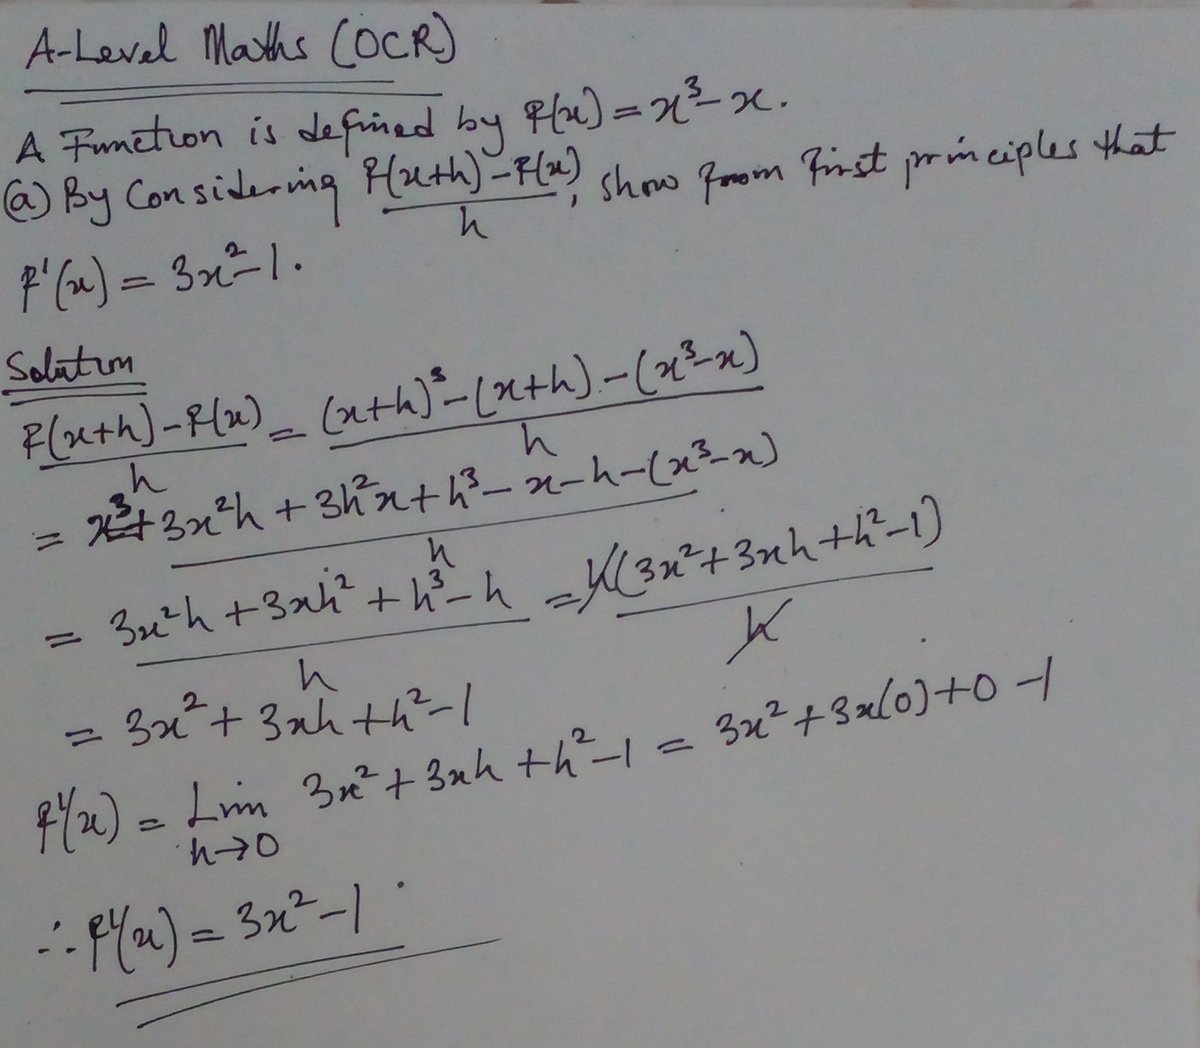 A-Level Maths (OCR)
A Function is defined by f(x) = x³ - x.
(a) By Considering (f(x+h) - f(x))/h, show from first principles that
f'(x) = 3x² - 1.
Solution
(f(x+h) - f(x))/h = ((x+h)³ - (x+h) - (x³ - x))/h
= (x³ + 3x²h + 3h²x + h³ - x - h - (x³ - x))/h
= (3x²h + 3xh² + h³ - h)/h = h(3x² + 3xh + h² - 1)/h
= 3x² + 3xh + h² - 1
f'(x) = Lim h→0 3x² + 3xh + h² - 1 = 3x² + 3x(0) + 0 - 1
∴ f'(x) = 3x² - 1